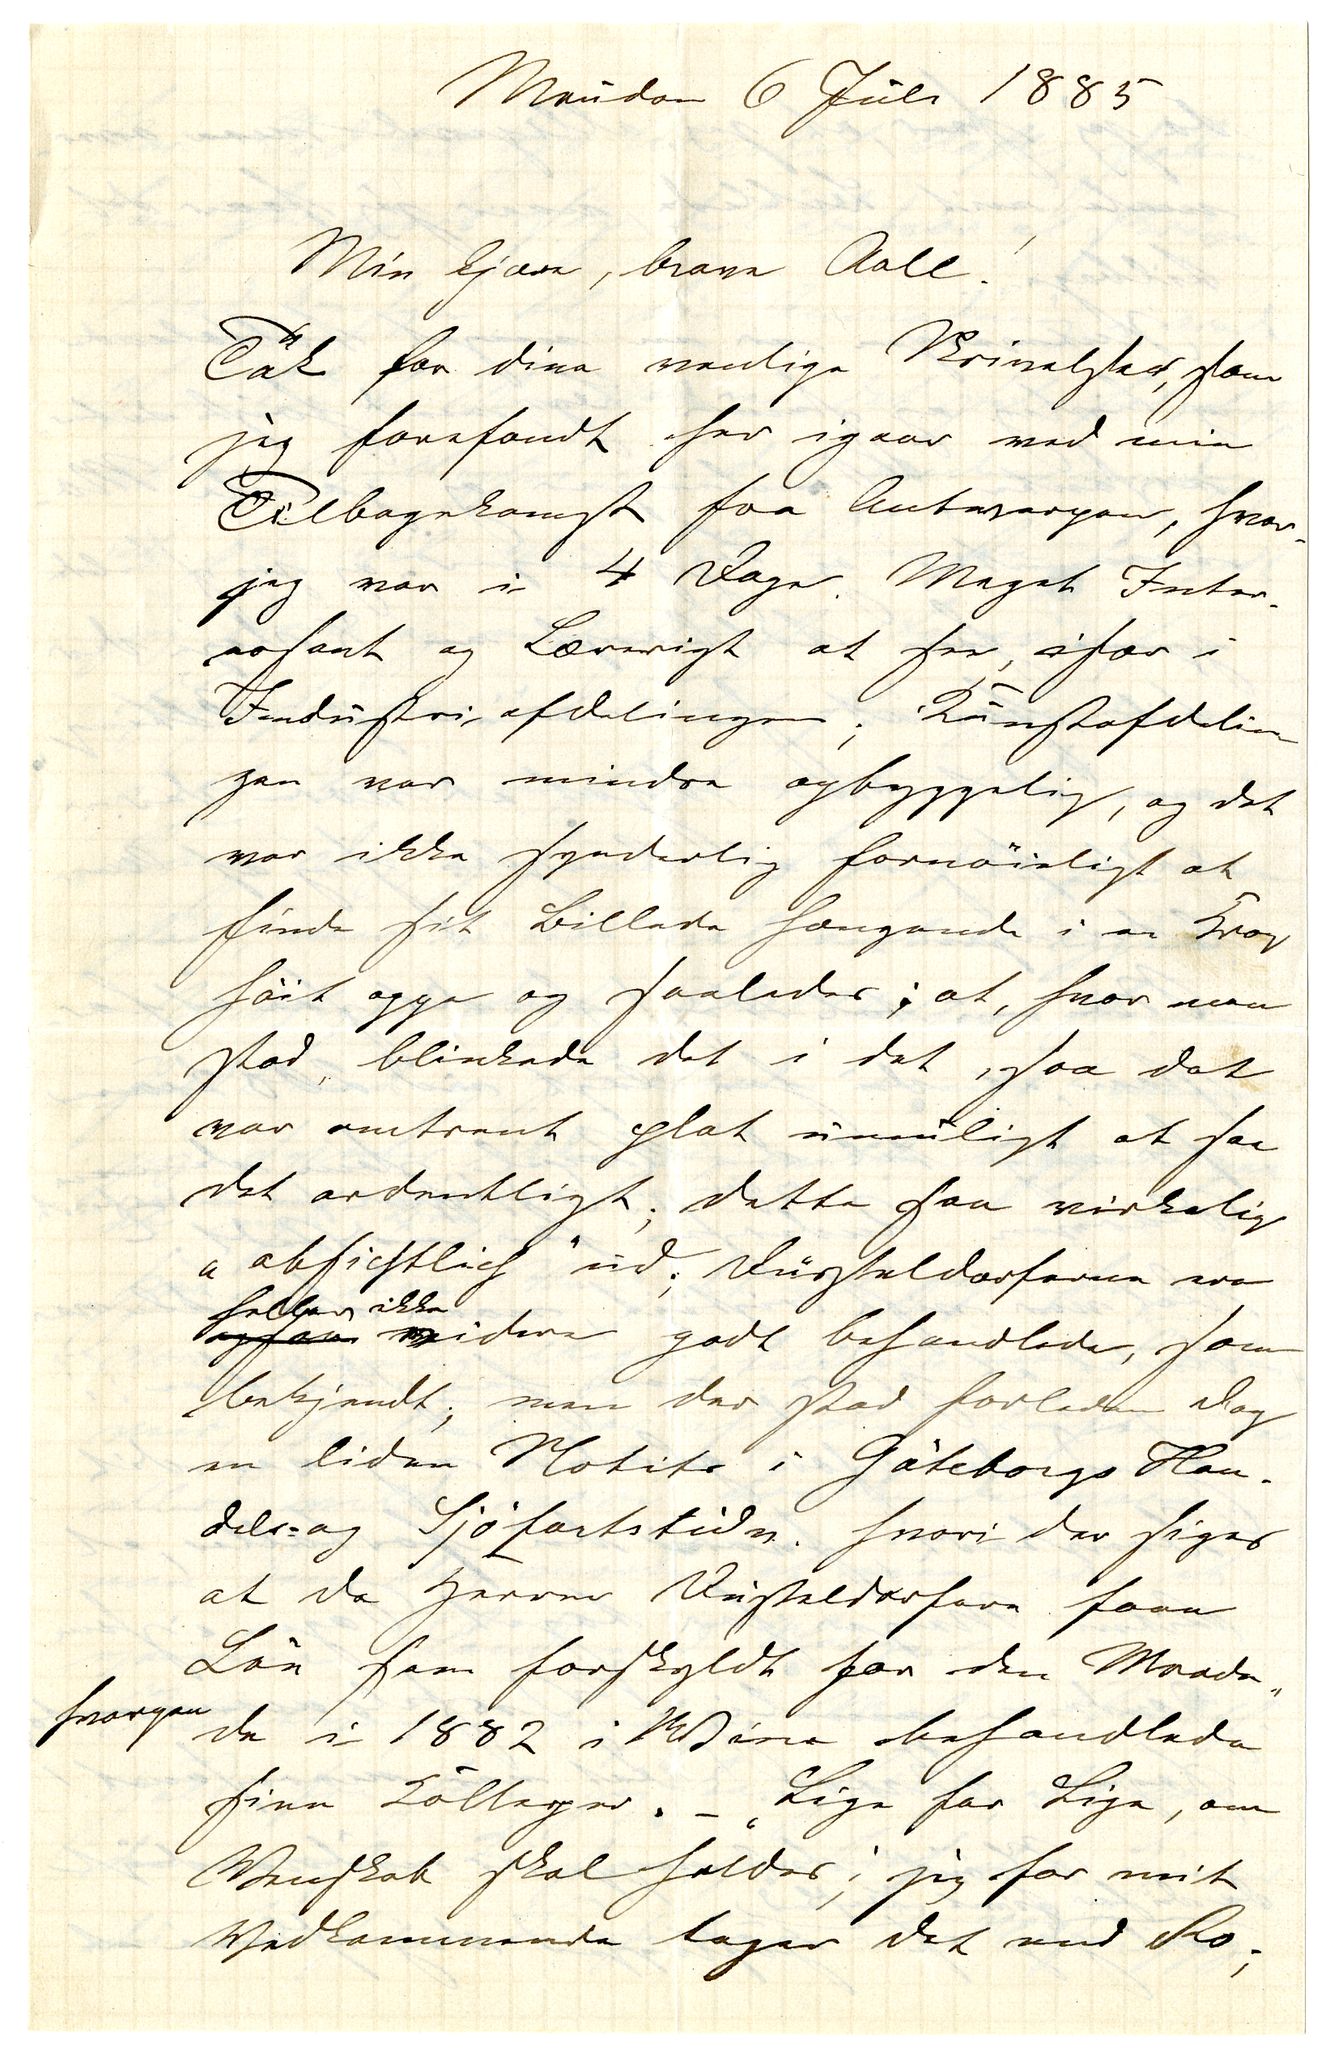 Meudon 6 Juli 1885
Min kjære, brave Aall!
Tak for dine venlige Skrivelser, som
jeg forefandt her igaar ved min
Tilbagekomst fra Antwerpen, hvor
jeg var i 4 Dage. Meget Inter-
essant og Lærerigt at see, især i
Industri-afdelingen; Kunstafdelin
gen var mindre opbyggelig, og det
var ikke synderlig fornöieligt at
finde sit Billede hængende i en Krog
höit oppe og saaledes, at, hvor man
stod, blinkede det i det, saa det
var omtrent plat umuligt at see
det ordentligt; dette saa virkelig
„absichtlich" ud; Düsseldorferne ere
heller ikke videre godt behandlede, som
bekjendt; men der stod forleden Dag
en liden Notits i Göteborgs Han-
dels- og Sjöfartstidn. hvori der siges
at de Herrer Düsseldorfere faae
Lön som forskyldt for den Maade
hvorpaa
de i 1882 i Wien behandlede
sine Colleger. – „Lige for Lige, om
Venskab skal holdes; jeg for mit
Vedkommende tager det med Ro;